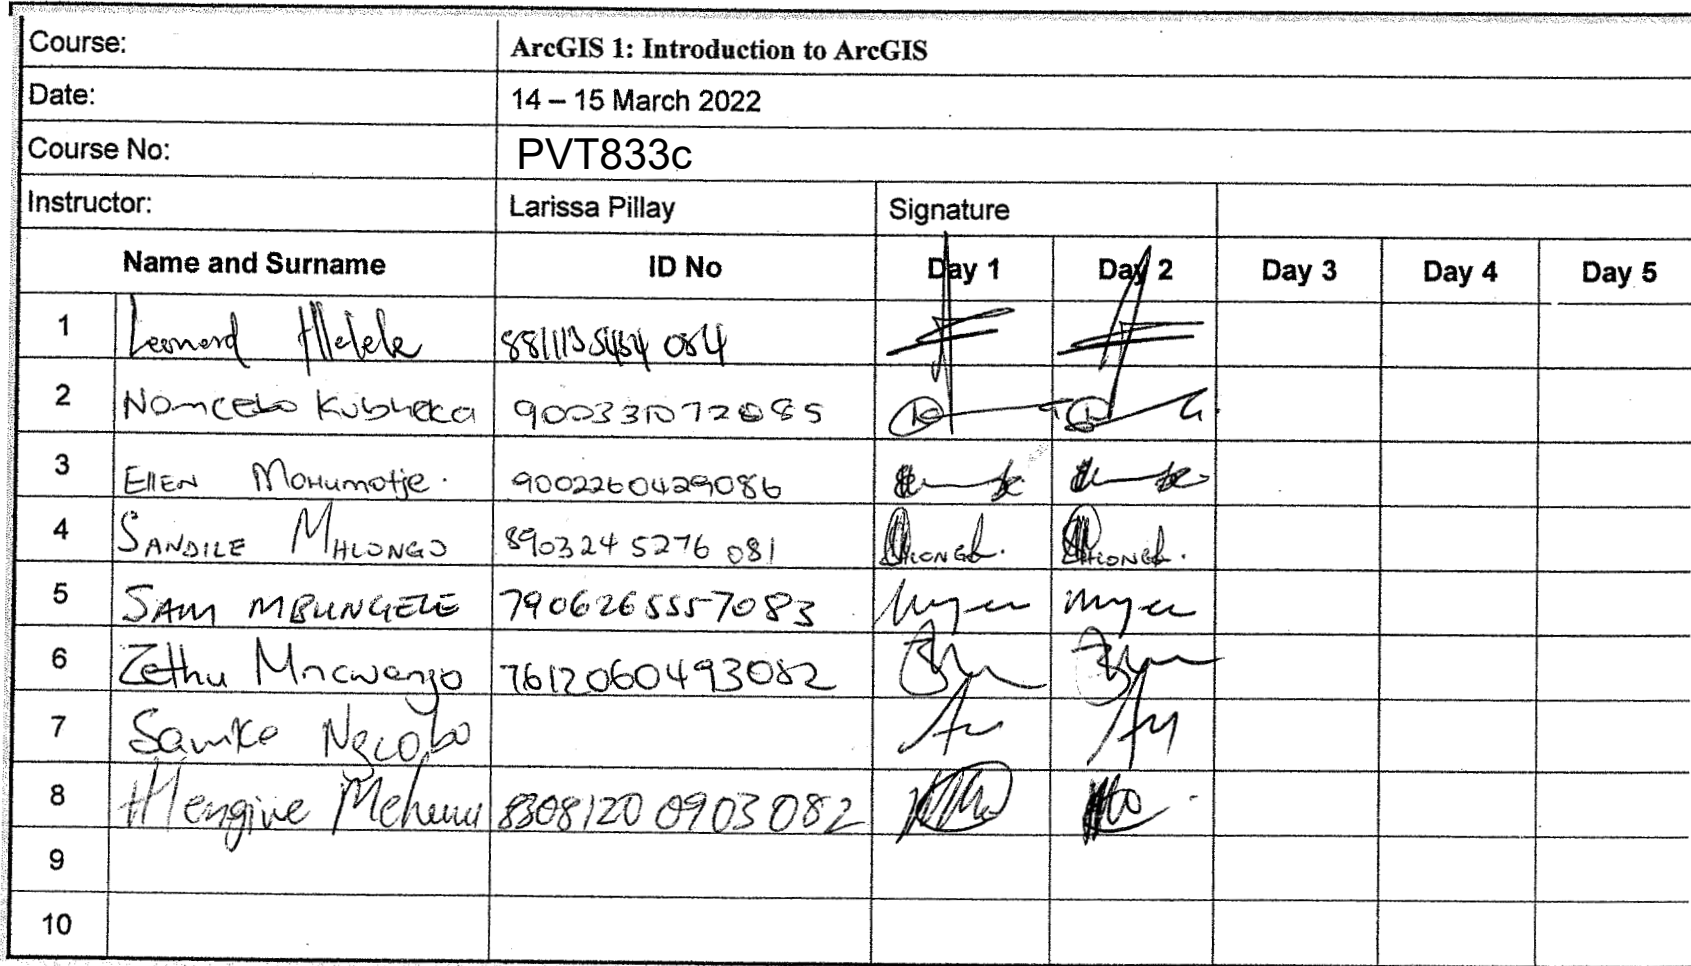 Course: ArcGIS 1: Introduction to ArcGIS
Date: 14 – 15 March 2022
Course No: PVT833c
Instructor: Larissa Pillay Signature
Name and Surname ID No Day 1 Day 2 Day 3 Day 4 Day 5
1 Leonard 8811135454 084
2 Nomcebo Kubheka 900331072085
3 Ellen Mohumotje. 9002260429086
4 SANDILE MHLONGO 890324 5276 081
5 SAM MBUNGELE 7906265557083
6 Zethu Mncwango 7612060493082
7 Samke Ngcobo
8 8308120 0903 082
9
10